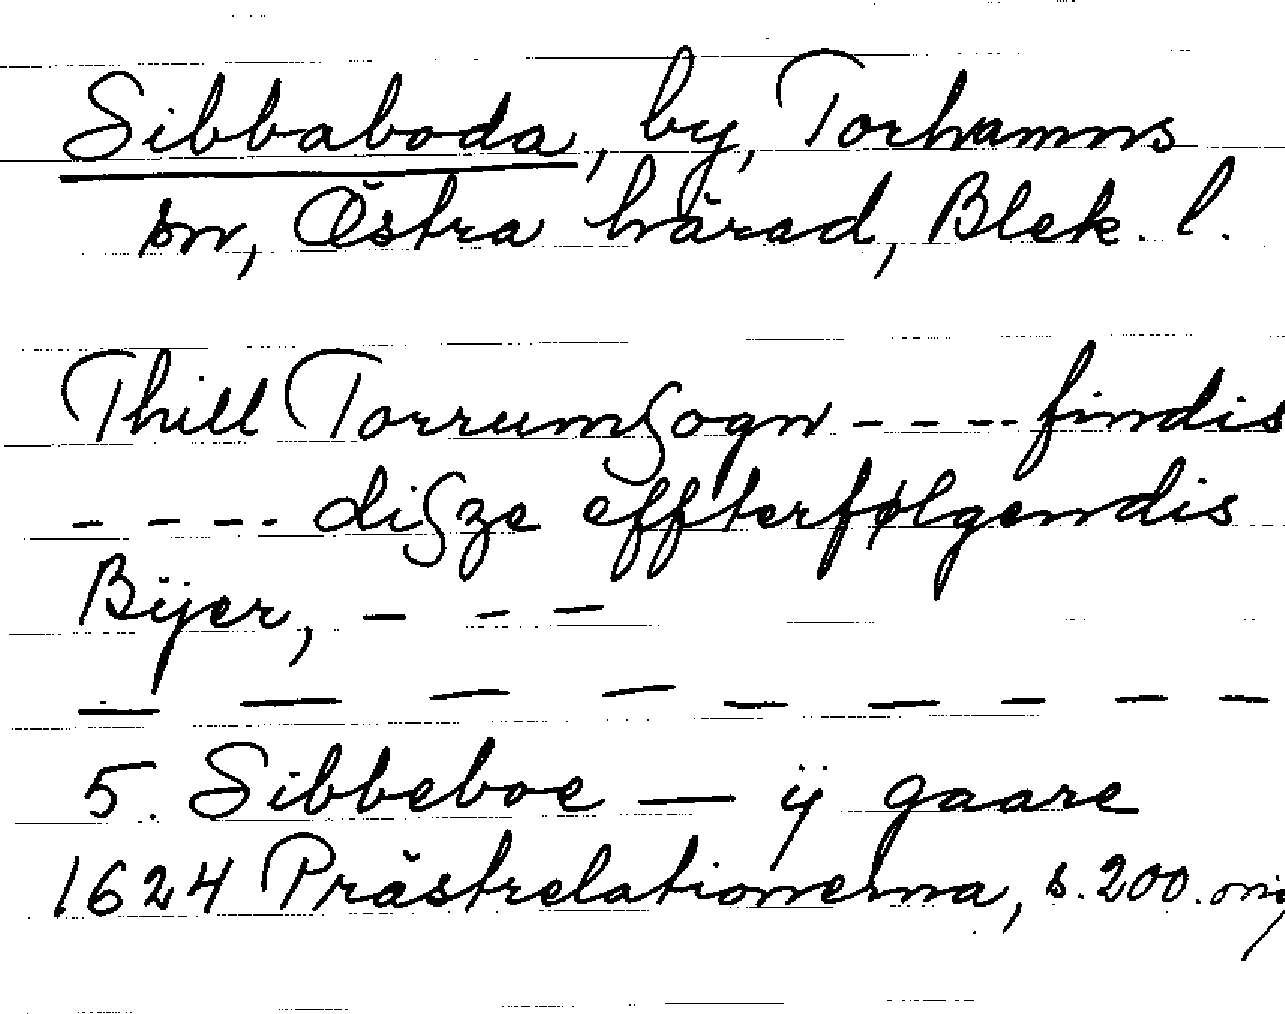 Sibbaboda, by, Torhamns
sn, Östra härad, Blek. l.
Thill Torrumßogn - - - - findis
- - - - dißze effterfølgendis
Bÿer, - - -
- - - - - - - - -
5. Sibbeboe — ÿ gaare
1624 Prästrelationerna, s. 200.